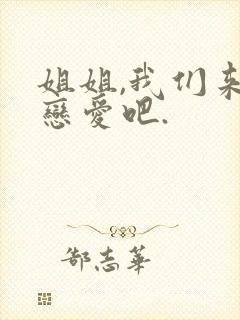 姐姐,我们来
戀愛吧.
郜志華